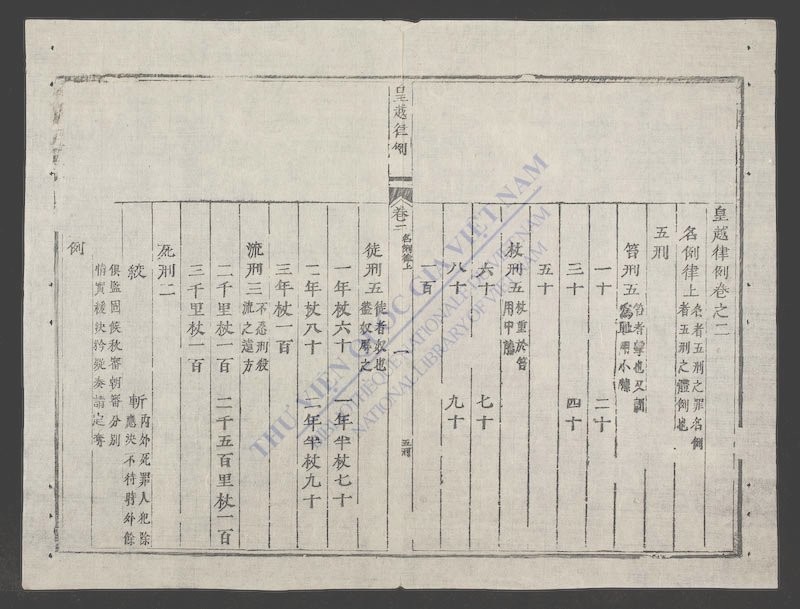 皇越律例卷之二
名例律上 名者五刑之罪名例者五刑之體例也
五刑
笞刑五 笞者擊也又訓爲恥用小
一十 二十
三十 四十
五十
杖刑五 杖重於笞用中
六十 七十
八十 九十
一百
皇越律例 卷二 名例律上 一 五刑
徒刑五 徒者奴也蓋奴辱之
一年杖六十 一年半杖七十
二年杖八十 二年半杖九十
三年杖一百
流刑三 不忍刑殺流之遠方
二千里杖一百 二千五百里杖一百
三千里杖一百
死刑二
絞 斬 內外死罪人犯除應決不待時外餘
俱監固候秋審朝審分別情實緩決矜疑奏請定奪
例
THƯ VIỆN QUỐC GIA VIỆT NAM
BIBLIOTHÈQUE NATIONALE DU VIETNAM
NATIONAL LIBRARY OF VIETNAM